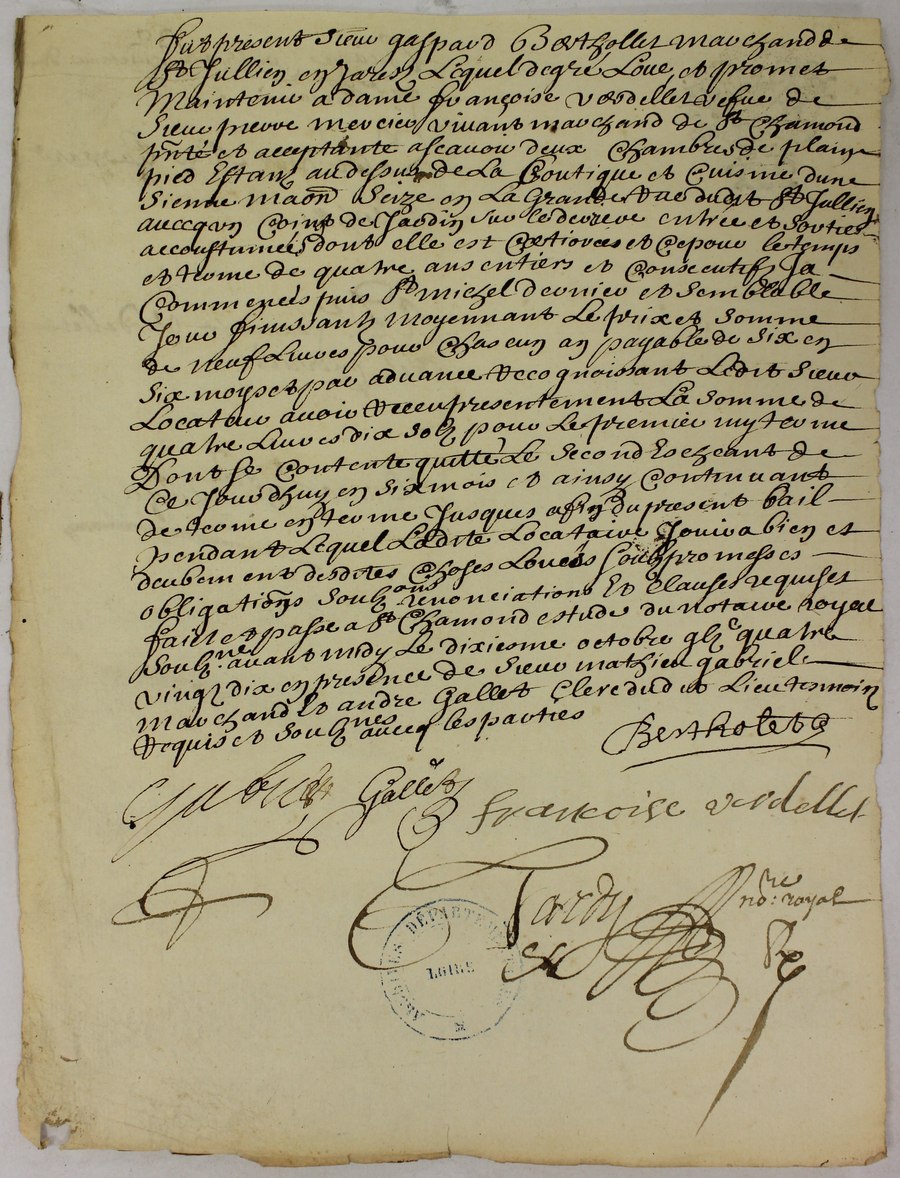 Fut present Sieur gaspard Berthollet marchand de
St Jullien en Jarez Lequel de gré Loue et promet
Maintenir a dame françoise verdellet vefue de
Sieur pierre mercier vivant marchand de St Chamond
pnte et acceptante ascavoir deux Chambres de plain
pied Estant au dessus de La Boutique et Cuisine dune
Sienne maon Seize en La Grande Rue dudit St Jullien
avecq un Coing de Jardin sur le derrere entrée et sorties
accoustumées dont elle est Certiorée et Ce pour le temps
et terme de quatre ans entiers et Consecutifs Ja
Commencés puis St michel dernier et semblable
Jour finissantz moyennant Le prix et somme
de neuf Livres pour Chascun an payable de six en
six moys et par advance Recognoissant Ledit Sieur
Locateur avoir Receu presentement La somme de
quatre Livres dix solz pour Le premier my terme
Dont se Contente quitte Le second Escheant de
Ce Jourdhuy en six mois et ainsy Continuant
de terme en terme Jusques a fin du present bail
pendant Lequel Ladite Locataire Jouira bien et
deubement desdites Choses Louées soubz promesses
obligations soubzons renonciations Et Clauses requises
faict et passé a St Chamond estude du notaire royal
soubzne avant midy Le dixiesme octobre gbjc quatre
vingz dix en presence de Sieur mathieu gabriel
marchand Et andre Gallet Clerc dudit Lieu tesmoins
Requis et soubznes avecq les parties
Bertholet
Gabriel Gallet
francoise verdellet
Tardy
no:re royal
ARCHIVES DÉPARTEMENTALES
LOIRE